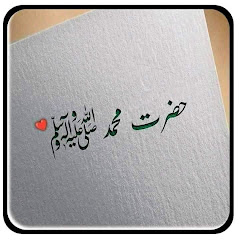 حضرت محمد صلی اللہ علیہ وآلہ وسلم